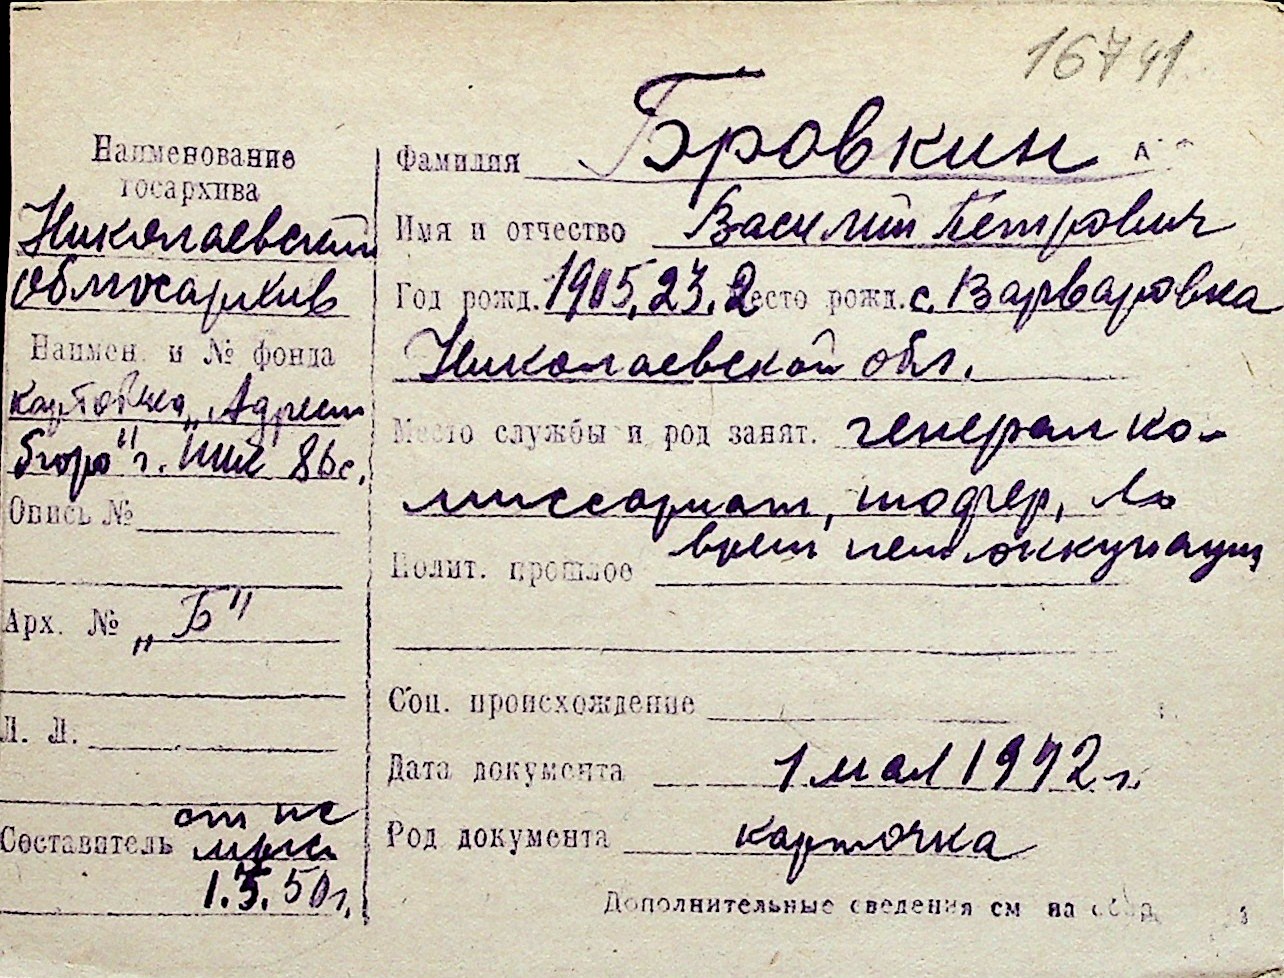 16741
Наименование
госархива
Николаевский
облгосархив
Наимен. и № фонда
картотека „Адресн
бюро" г. Ник 86с.
Опись №
Арх. № „Б"
Л. Л.
Составитель
1.3.50г.
Фамилия Бровкин
Имя и отчество Василий Петрович
Год рожд. 1905.23.2 Место рожд. с. Варваровка
Николаевской обл.
Место службы и род занят. генерал ко-
миссариат, шофер, во
время нем оккупации
Полит. прошлое
Соц. происхождение
Дата документа 1 мая 1942 г.
Род документа карточка
Дополнительные сведения см на